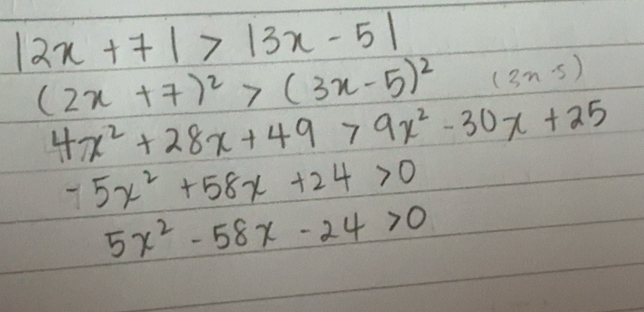 |2x + 7| > |3x - 5|
(2x + 7)² > (3x - 5)² (3x-5)
4x² + 28x + 49 > 9x² - 30x + 25
- 5x² + 58x + 24 > 0
5x² - 58x - 24 > 0